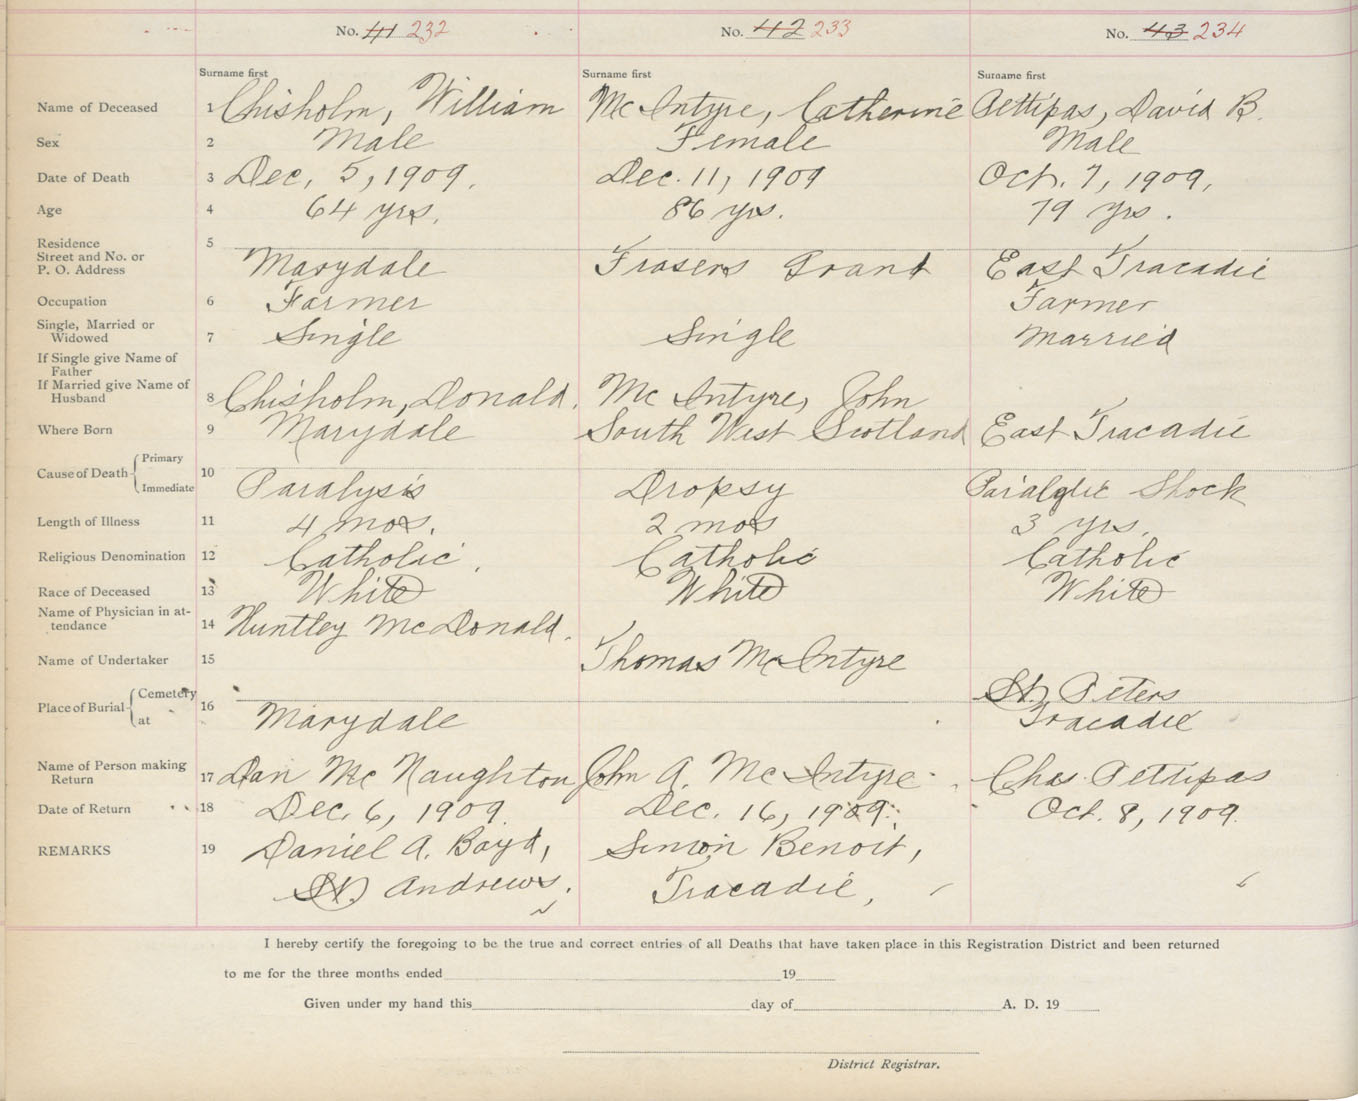 No. 41 232 No. 42 233 No. 43 234
Surname first Surname first Surname first
Name of Deceased 1 Chisholm, William McIntyre, Catherine Pettipas, David B.
Sex 2 Male Female Male
Date of Death 3 Dec. 5, 1909. Dec. 11, 1909 Oct. 7, 1909.
Age 4 64 yrs. 86 yrs. 79 yrs.
Residence 5
Street and No. or
P. O. Address Marydale Frasers Grant East Tracadie
Occupation 6 Farmer Farmer
Single, Married or
Widowed 7 Single Single Married
If Single give Name of
Father
If Married give Name of
Husband 8 Chisholm, Donald. McIntyre, John
Where Born 9 Marydale South West Scotland East Tracadie
Primary
Cause of Death 10
Immediate Paralysis Dropsy Paralytic Shock
Length of Illness 11 4 mos. 2 mos 3 yrs.
Religious Denomination 12 Catholic. Catholic Catholic
Race of Deceased 13 White White White
Name of Physician in at-
tendance 14 Huntley McDonald.
Name of Undertaker 15 Thomas McIntyre
Cemetery St. Peters
Place of Burial 16
at Marydale Tracadie
Name of Person making
Return 17 Dan McNaughton John A. McIntyre Chas. Pettipas
Date of Return 18 Dec. 6, 1909. Dec. 16, 1909. Oct. 8, 1909.
REMARKS 19 Daniel A. Boyd, Simon Benoit,
St. Andrews. Tracadie,
I hereby certify the foregoing to be the true and correct entries of all Deaths that have taken place in this Registration District and been returned
to me for the three months ended 19
Given under my hand this day of A. D. 19
District Registrar.